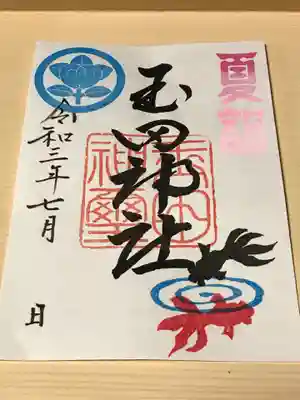 夏詣
玉田神社
神璽
令和三年七月 日